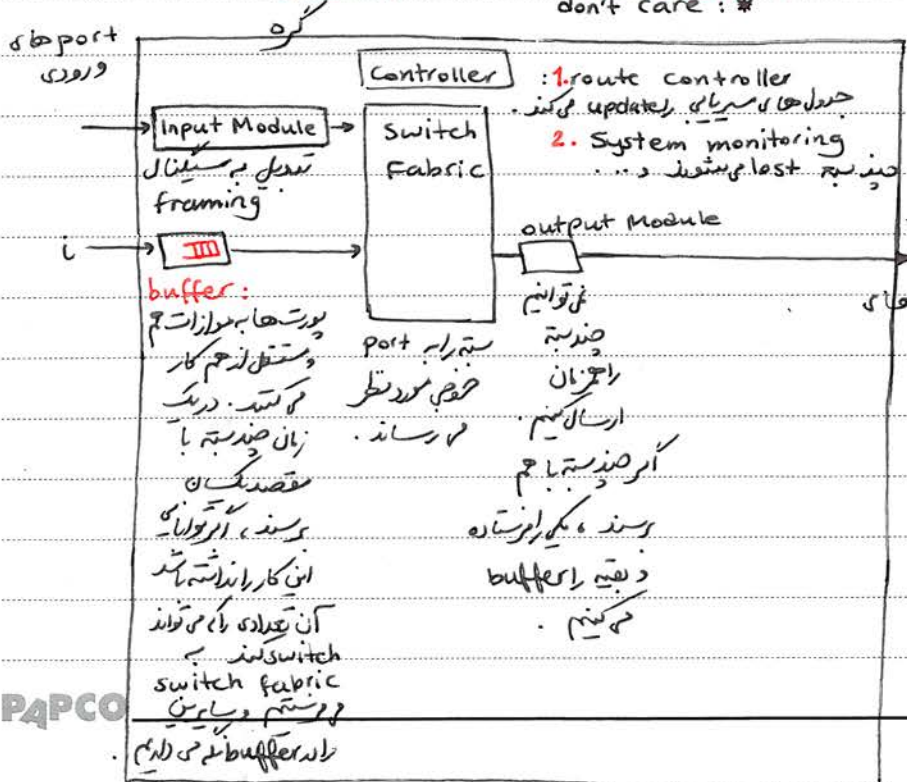 don't care : *
گره
port های
ورودی
Controller
: 1. route controller
جدول های مسیریابی را update می کند.
2. System monitoring
چند بسته lost می شوند و ...
Input Module
تبدیل به سیگنال
framing
Switch
Fabric
output Module
i
buffer :
پورت ها به موازات هم
و مستقل از هم کار
می کنند. در یک
زمان چند بسته با
مقصد یکسان
برسند، اگر توانایی
این کار را نداشته باشد
آن تعدادی را که می تواند
switch کند به
switch fabric
می فرستیم و سایرین
را در buffer نگه می داریم.
بسته را به port
خروجی مورد نظر
می رساند.
نمی توانیم
چند بسته
را همزمان
ارسال کنیم.
اگر چند بسته با هم
برسند، یکی را فرستاده
و بقیه را buffer
می کنیم.
های
PAPCO